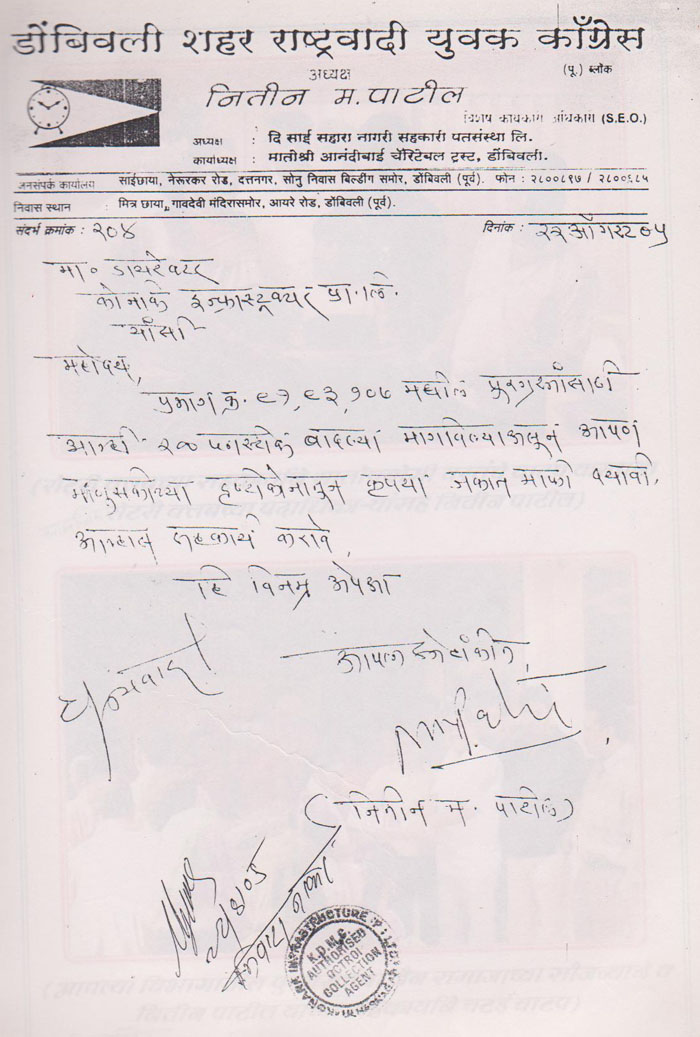 डोंबिवली शहर राष्ट्रवादी युवक काँग्रेस
(पू.) ब्लॉक
अध्यक्ष
नितीन म. पाटील
विशेष कार्यकारी अधिकारी (S.E.O.)
अध्यक्ष : दि साई सहारा नागरी सहकारी पतसंस्था लि.
कार्याध्यक्ष : मातीश्री आनंदीबाई चॅरिटेबल ट्रस्ट, डोंबिवली.
जनसंपर्क कार्यालय साईछाया, नेरूरकर रोड, दत्तनगर, सोनु निवास बिल्डींग समोर, डोंबिवली (पूर्व). फोन : २८००८९७ / २८००६८५
निवास स्थान : मित्र छाया, गावदेवी मंदिरासमोर, आयरे रोड, डोंबिवली (पूर्व).
संदर्भ क्रमांक : २०४ दिनांक : २२ ऑगस्ट ०५
मा० डायरेक्टर
कोनार्क इन्फ्रास्ट्रक्चर प्रा.लि.
यांसी
महोदय,
प्रभाग क्र. ९१, ९३, १०७ मधील पूरग्रस्तांसाठी
आम्ही २०० प्लास्टीक बादल्या मागविल्या असून आपण
माणुसकीच्या दृष्टीकोनातून कृपया जकात माफी द्यावी,
आम्हास सहकार्य करावे,
हि विनम्र अपेक्षा
धन्यवाद! आपला स्नेहांकीत,
(नितीन म. पाटील)
KONARK INFRASTRUCTURE (P) LTD.
K.D.M.C.
AUTHORISED
OCTROI
COLLECTION
AGENT